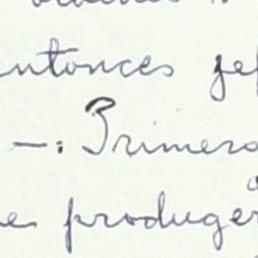 entonces jef
—: Primero
e produger